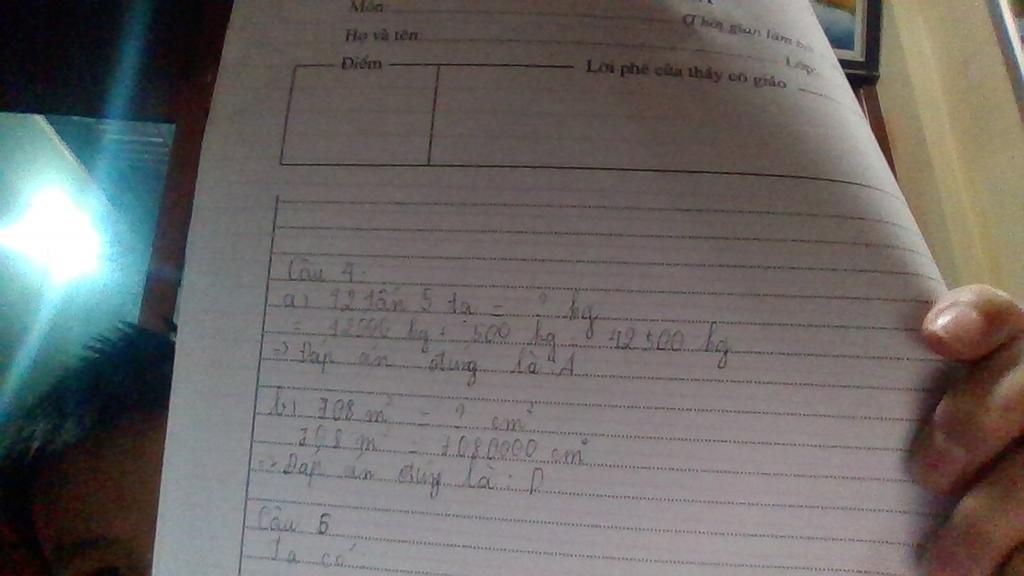 Môn
(Thời gian làm bài
Họ và tên
Lớp:
Điểm
Lời phê của thầy cô giáo
Câu 4:
a) 12 tấn 5 tạ = ? kg
= 12000 kg + 500 kg = 12500 kg
=> Đáp án đúng là: A
b) 108 m² = ? cm²
108 m² = 1080000 cm²
=> Đáp án đúng là: D
Câu 5
Ta có